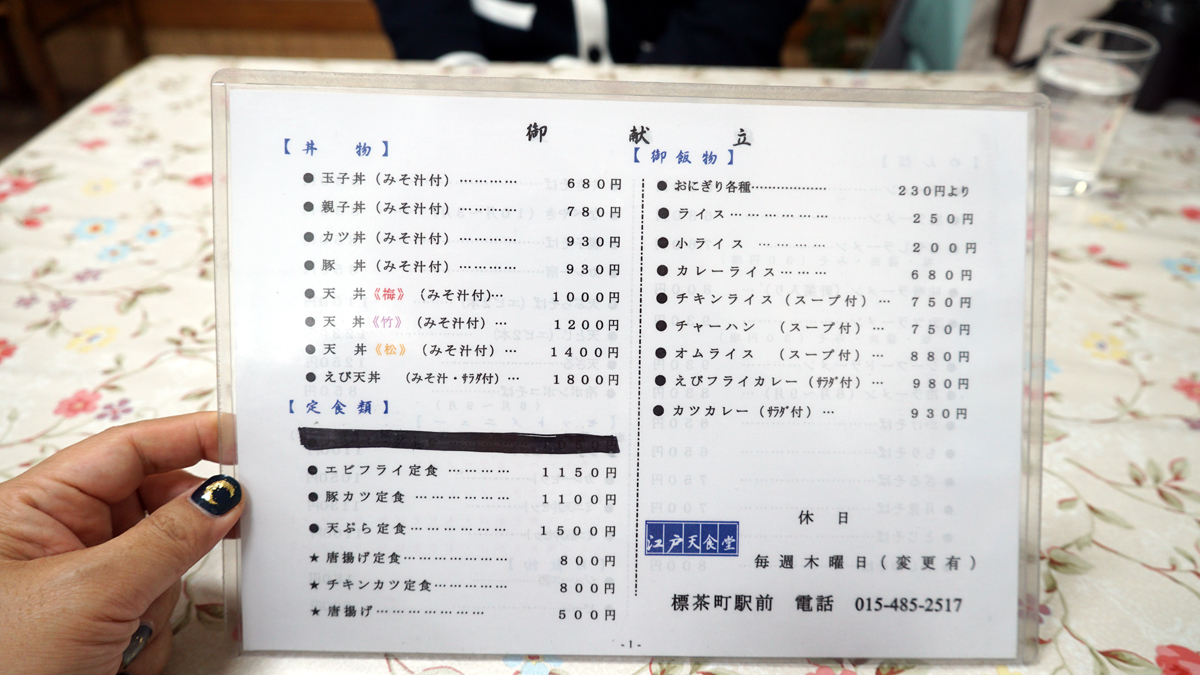 御献立
【丼 物】
●玉子丼（みそ汁付）………… 680円
●親子丼（みそ汁付）………… 780円
●カツ丼（みそ汁付）………… 930円
●豚 丼（みそ汁付）………… 930円
●天 丼《梅》（みそ汁付)… 1000円
●天 丼《竹》（みそ汁付）… 1200円
●天 丼《松》（みそ汁付）… 1400円
●えび天丼 （みそ汁・ｻﾗﾀﾞ付）… 1800円
【定食類】
●エビフライ定食 ………… 1150円
●豚カツ定食 ……………… 1100円
●天ぷら定食……………… 1500円
★唐揚げ定食……………… 800円
★チキンカツ定食………… 800円
★唐揚げ………………… 500円
【御飯物】
●おにぎり各種……………… 230円より
●ライス……………… 250円
●小ライス ………… 200円
●カレーライス……… 680円
●チキンライス（スープ付）… 750円
●チャーハン （スープ付）… 750円
●オムライス （スープ付）… 880円
●えびフライカレー（ｻﾗﾀﾞ付）… 980円
●カツカレー（ｻﾗﾀﾞ付）… 930円
休 日
江戸天食堂
毎週木曜日(変更有)
標茶町駅前 電話 015-485-2517
-1-